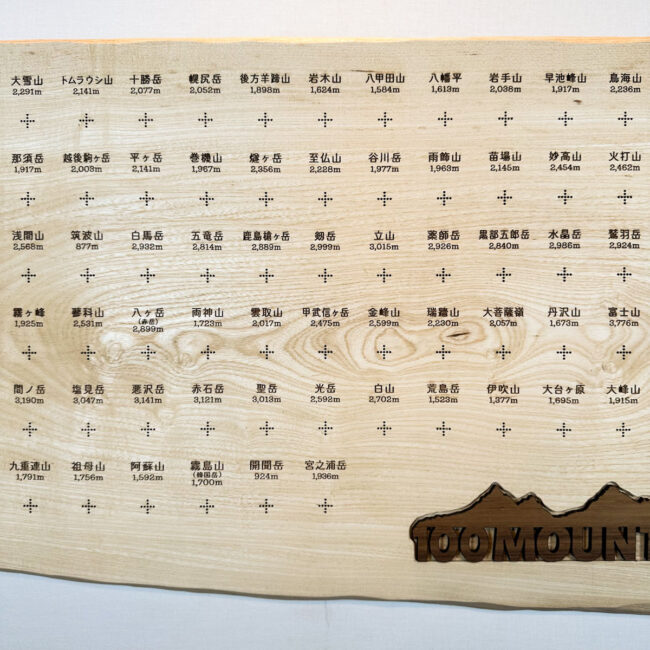 大雪山 トムラウシ山 十勝岳 幌尻岳 後方羊蹄山 岩木山 八甲田山 八幡平 岩手山 早池峰山 鳥海山
2,291m 2,141m 2,077m 2,052m 1,898m 1,624m 1,584m 1,613m 2,038m 1,917m 2,236m
那須岳 越後駒ヶ岳 平ヶ岳 巻機山 燧ヶ岳 至仏山 谷川岳 雨飾山 苗場山 妙高山 火打山
1,917m 2,003m 2,141m 1,967m 2,356m 2,228m 1,977m 1,963m 2,145m 2,454m 2,462m
浅間山 筑波山 白馬岳 五竜岳 鹿島槍ヶ岳 剱岳 立山 薬師岳 黒部五郎岳 水晶岳 鷲羽岳
2,568m 877m 2,932m 2,814m 2,889m 2,999m 3,015m 2,926m 2,840m 2,986m 2,924m
霧ヶ峰 蓼科山 八ヶ岳 両神山 雲取山 甲武信ヶ岳 金峰山 瑞牆山 大菩薩嶺 丹沢山 富士山
(赤岳)
1,925m 2,531m 2,899m 1,723m 2,017m 2,475m 2,599m 2,230m 2,057m 1,673m 3,776m
間ノ岳 塩見岳 悪沢岳 赤石岳 聖岳 光岳 白山 荒島岳 伊吹山 大台ヶ原 大峰山
3,190m 3,047m 3,141m 3,121m 3,013m 2,592m 2,702m 1,523m 1,377m 1,695m 1,915m
九重連山 祖母山 阿蘇山 霧島山 開聞岳 宮之浦岳
(韓国岳)
1,791m 1,756m 1,592m 1,700m 924m 1,936m
100 MOUNT